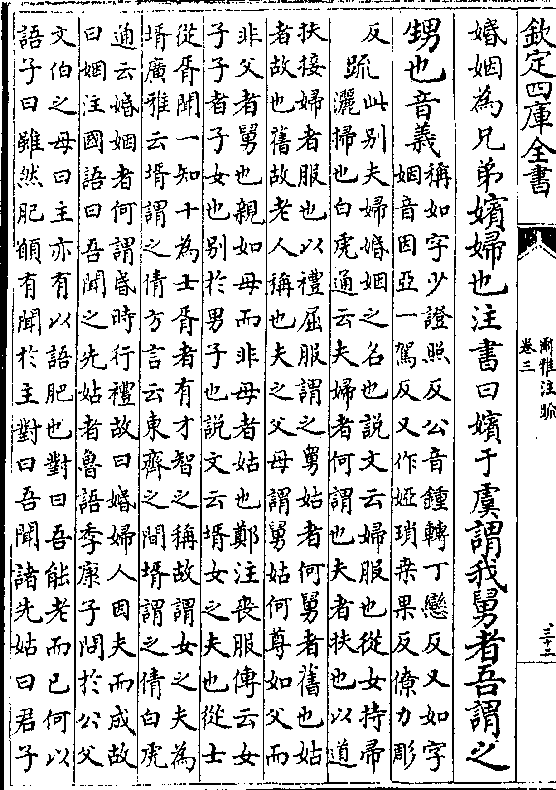 欽定四庫全書
爾雅注疏
卷三
婚姻為兄弟嬪婦也注書曰嬪于虞謂我舅者吾謂之
甥也音義
稱如字少證照反公音鍾轉丁戀反又如字
姻音因亞一駕反又作婭瑣桒果反僚力彫
反
疏
此别夫婦婚姻之名也說文云婦服也從女持帚
灑掃也白虎通云夫婦者何謂也夫者扶也以道
扶接婦者服也以禮屈服謂之舅姑者何舅者舊也姑
者故也舊故老人稱也夫之父母謂舅姑何尊如父而
非父者舅也親如母而非母者姑也鄭注喪服傳云女
子子者子女也别於男子也說文云壻女之夫也從士
從胥聞一知十為士胥者有才智之稱故謂女之夫為
壻廣雅云壻謂之倩方言云東齊之間壻謂之倩白虎
通云婚姻者何謂昏時行禮故曰婚婦人因夫而成故
曰姻注國語曰吾聞之先姑者魯語季康子問於公父
文伯之母曰主亦有以語肥也對曰吾能老而已何以
語子曰雖然肥願有聞於主對曰吾聞諸先姑曰君子